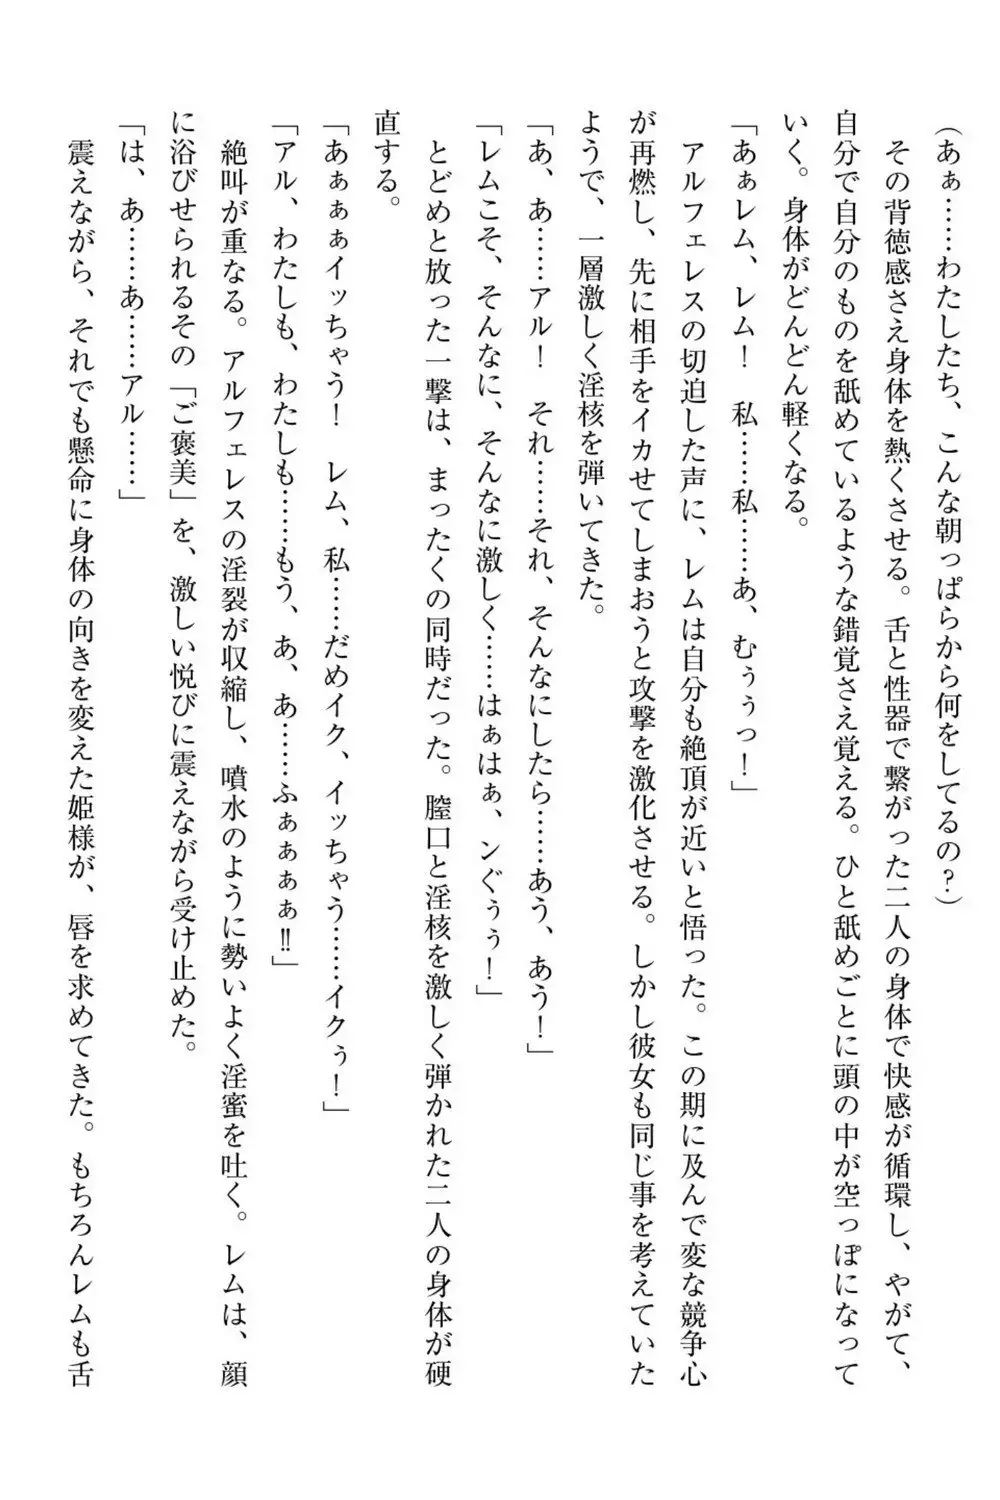 （あぁ……わたしたち、こんな朝っぱらから何をしてるの？）
　その背徳感さえ身体を熱くさせる。舌と性器で繋がった二人の身体で快感が循環し、やがて、
自分で自分のものを舐めているような錯覚さえ覚える。ひと舐めごとに頭の中が空っぽになって
いく。身体がどんどん軽くなる。
「あぁレム、レム！　私……私……あ、むぅぅっ！」
　アルフェレスの切迫した声に、レムは自分も絶頂が近いと悟った。この期に及んで変な競争心
が再燃し、先に相手をイカせてしまおうと攻撃を激化させる。しかし彼女も同じ事を考えていた
ようで、一層激しく淫核を弾いてきた。
「あ、あ……アル！　それ……それ、そんなにしたら……あう、あう！」
「レムこそ、そんなに、そんなに激しく……はぁはぁ、ンぐぅぅ！」
　とどめと放った一撃は、まったくの同時だった。膣口と淫核を激しく弾かれた二人の身体が硬
直する。
「あぁぁぁイッちゃう！　レム、私……だめイク、イッちゃう……イクぅ！」
「アル、わたしも、わたしも……もう、あ、あ……ふぁぁぁぁ‼」
　絶叫が重なる。アルフェレスの淫裂が収縮し、噴水のように勢いよく淫蜜を吐く。レムは、顔
に浴びせられるその「ご褒美」を、激しい悦びに震えながら受け止めた。
「は、あ……あ……アル……」
　震えながら、それでも懸命に身体の向きを変えた姫様が、唇を求めてきた。もちろんレムも舌